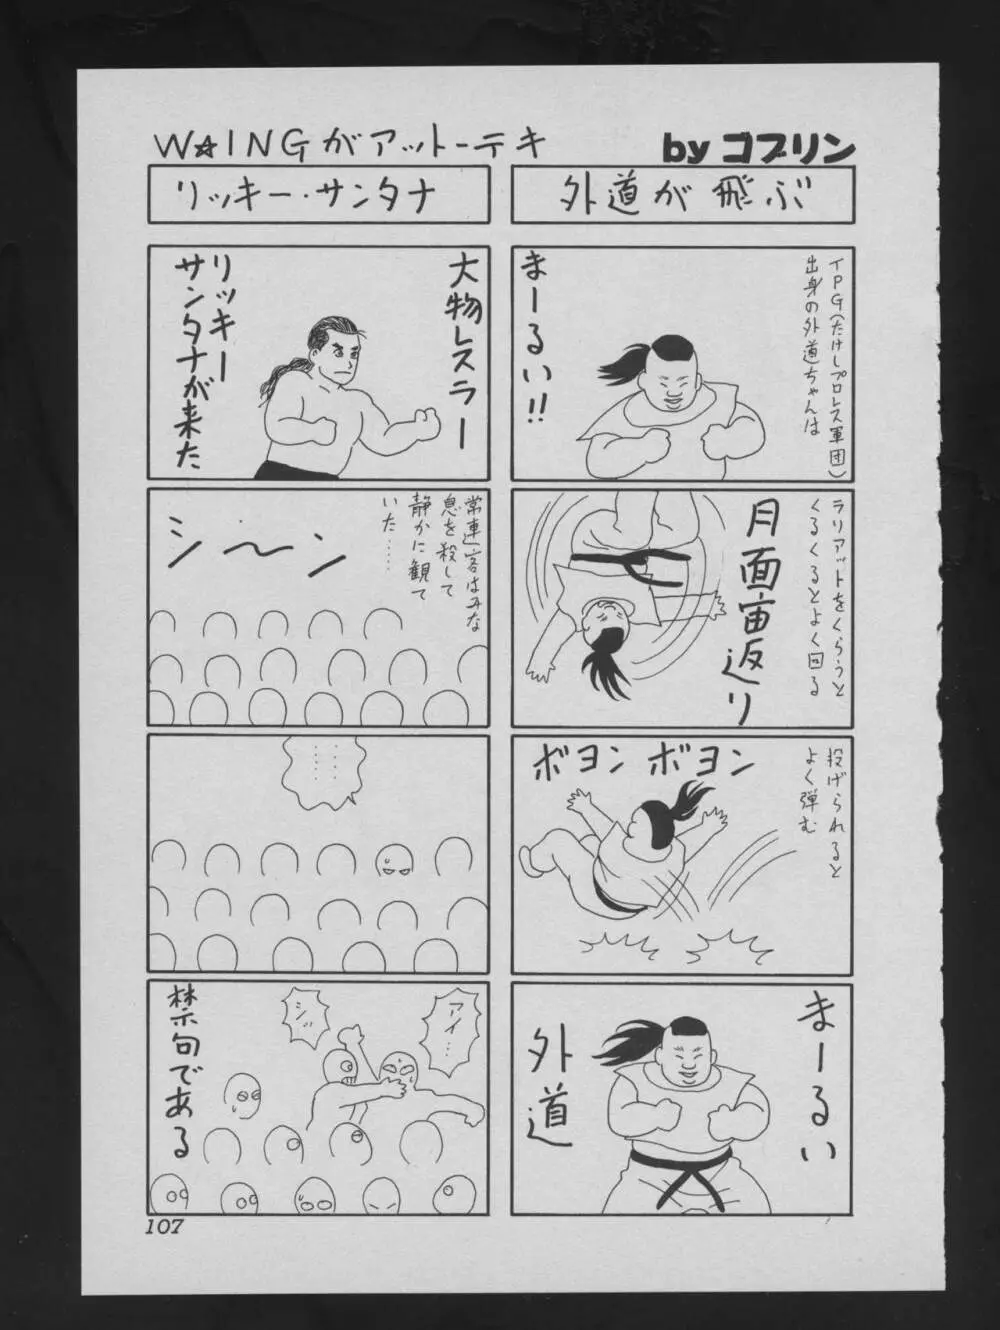 W☆INGがアットーテキ
by ゴブリン
外道が飛ぶ
TPG(たけしプロレス軍団)
出身の外道ちゃんは
まーるい!!
ラリアットをくらうと
くるくるとよく回る
月面宙返り
投げられると
よく弾む
ボヨン ボヨン
まーるい
外道
リッキー・サンタナ
大物レスラー
リッキー
サンタナが来た
常連客はみな
息を殺して
静かに観て
いた……
シ〜ン
……
……
アイ…
シッ
禁句である
107